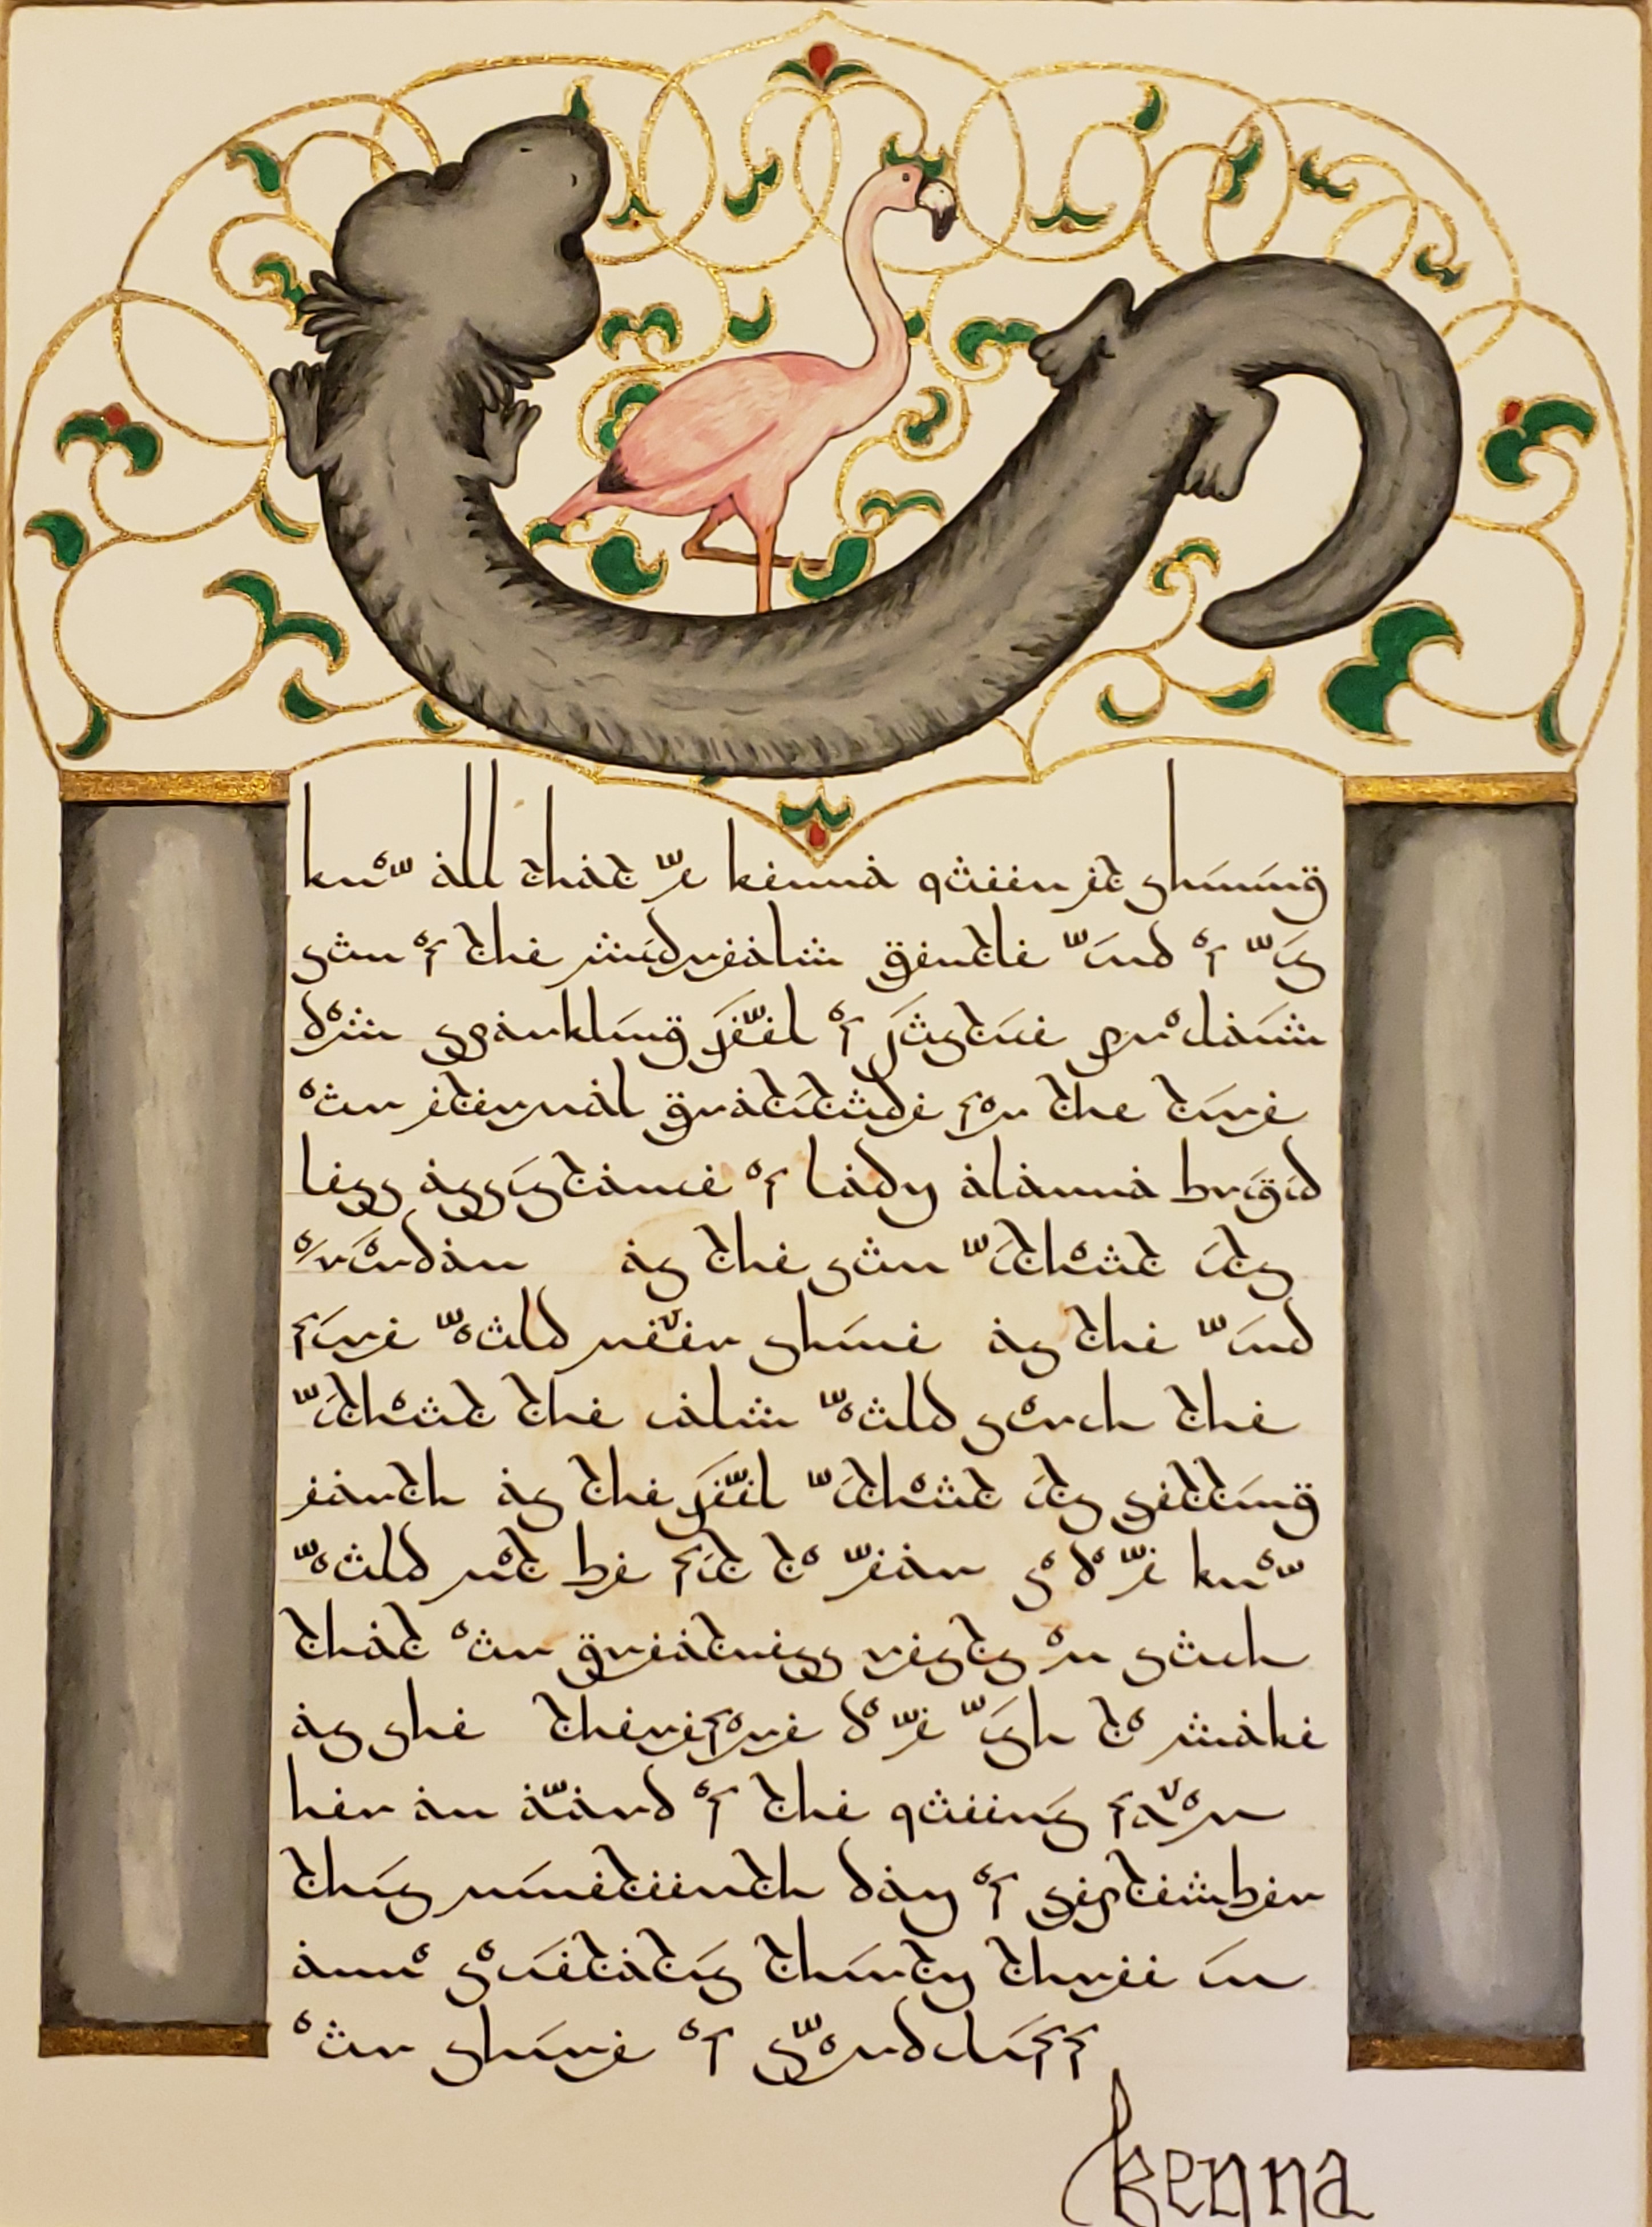 know all that we kenna queen et shining
sun of the midrealm gentle wind of wis
dom sparkling jewel of justice proclaim
our eternal gratitude for the tire
less assistance of lady alanna brigid
o/riordan as the sun without its
fire would never shine as the wind
without the calm would scorch the
earth as the jewel without its setting
would not be fit to wear so do we know
that our greatness rests on such
as she therefore do we wish to make
her an award of the queens favor
this nineteenth day of september
anno societatis thirty three in
our shire of swordcliff
Kenna